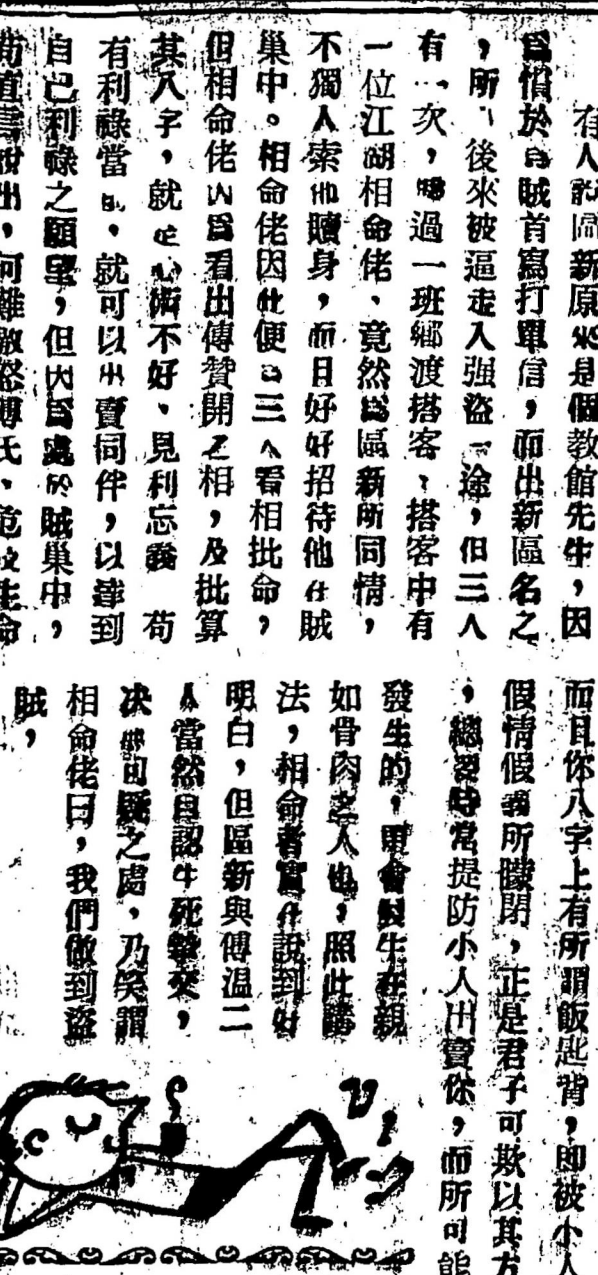 有人說區新原來是個教館先生，因
爲慣於爲賊首寫打單信，而出新區名之
，所以後來被逼走入强盜一途，但三人
有一次，過一班鄉渡搭客，搭客中有
一位江湖相命佬、竟然爲區新所同情，
不獨人索他贖身，而且好好招待他在賊
巢中。相命佬因此便三人看相批命，
但相命佬因爲看出傅贊開之相，及批算
其八字，就心術不好、見利忘義 苟
有利祿當，就可以出賣同伴，以達到
自己利祿之願望，但因爲處於賊巢中，
苟直言說出，何難激怒傅氏、危及生命
而且你八字上有所謂飯匙背，即被小人
假情假義所矇閉，正是君子可欺以其方
，總要時常提防小人出賣你，而所可能
發生的，會發生在親
如骨肉之人也，照此講
法，相命者實在說到好
明白，但區新與傅溫二
人當然自認生死摯交，
决可疑之處，乃笑謂
相命佬曰，我們做到盜
賊，